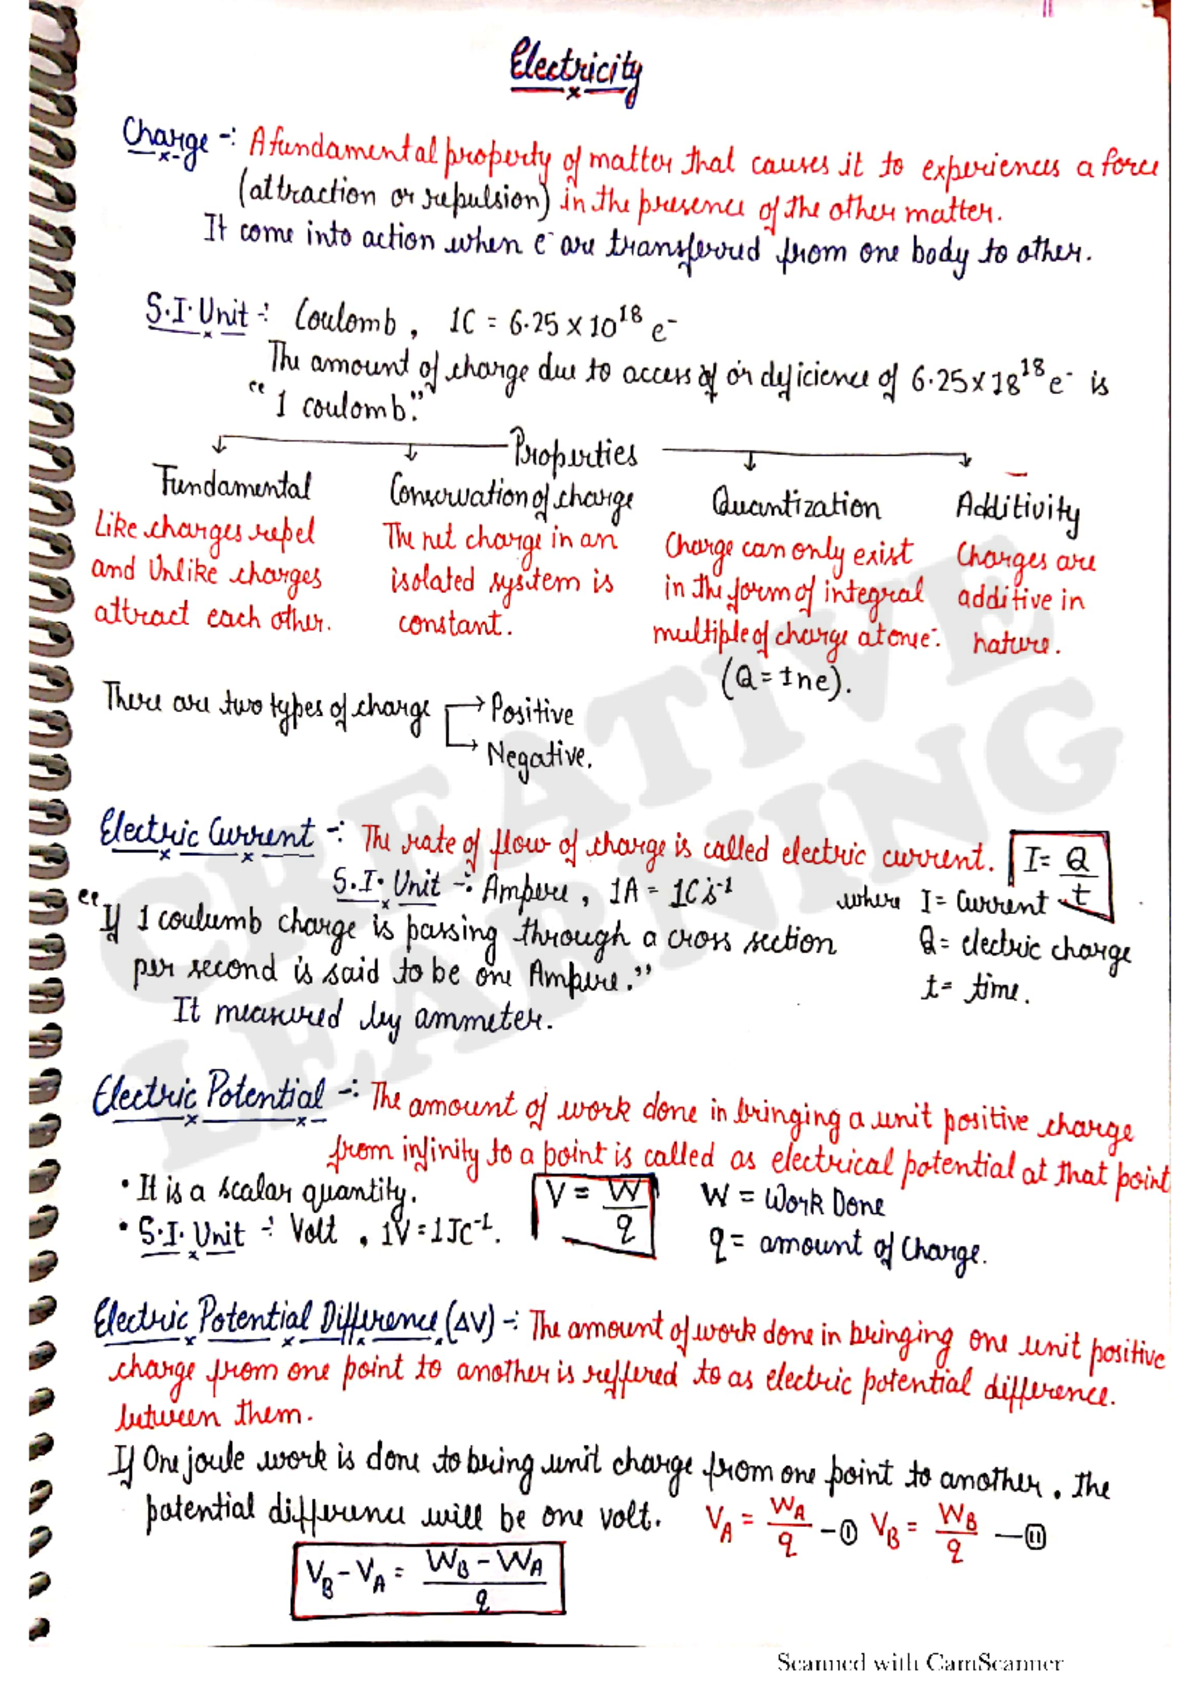 Electricity
Charge -: A fundamental property of matter that causes it to experiences a force
(attraction or repulsion) in the presence of the other matter.
It come into action when e⁻ are transferred from one body to other.
S.I. Unit -: Coulomb, 1C = 6.25 × 10¹⁸ e⁻
The amount of charge due to access of or deficience of 6.25 × 18¹⁸ e⁻ is
"1 coulomb."
Properties
Fundamental
Like charges repel
and Unlike charges
attract each other.
Conservation of charge
The net charge in an
isolated system is
constant.
Quantization
Charge can only exist
in the form of integral
multiple of charge at one⁻.
(Q = ±ne).
Additivity
Charges are
additive in
nature.
There are two types of charge → Positive
→ Negative.
Electric Current -: The rate of flow of charge is called electric current. I = Q/t
S.I. Unit -: Ampere, 1A = 1Cs⁻¹ where I = Current
"If 1 coulumb charge is passing through a cross section Q = electric charge
per second is said to be one Ampere." t = time.
It measured by ammeter.
Electric Potential -: The amount of work done in bringing a unit positive charge
from infinity to a point is called as electrical potential at that point
• It is a scalar quantity. V = W/q W = Work Done
• S.I. Unit -: Volt, 1V = 1JC⁻¹. q = amount of Charge.
Electric Potential Difference (ΔV) -: The amount of work done in bringing one unit positive
charge from one point to another is reffered to as electric potential difference.
between them.
If One joule work is done to bring unit charge from one point to another. The
potential difference will be one volt. V_A = W_A/q —(I) V_B = W_B/q —(II)
V_B - V_A = W_B - W_A/q
CREATIVE
LEARNING
Scanned with CamScanner